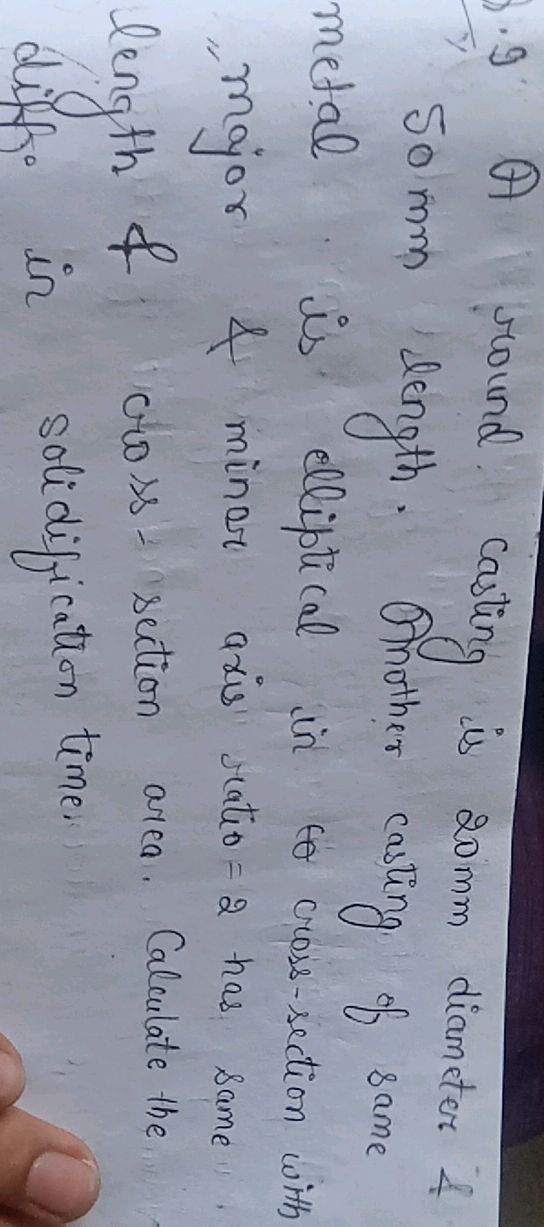 .9. A round casting is 20mm diameter &
50mm length. Another casting of same
metal is elliptical in to cross-section with
major & minor axis ratio = 2 has same
length & cross-section area. Calculate the
diff. in solidification time.